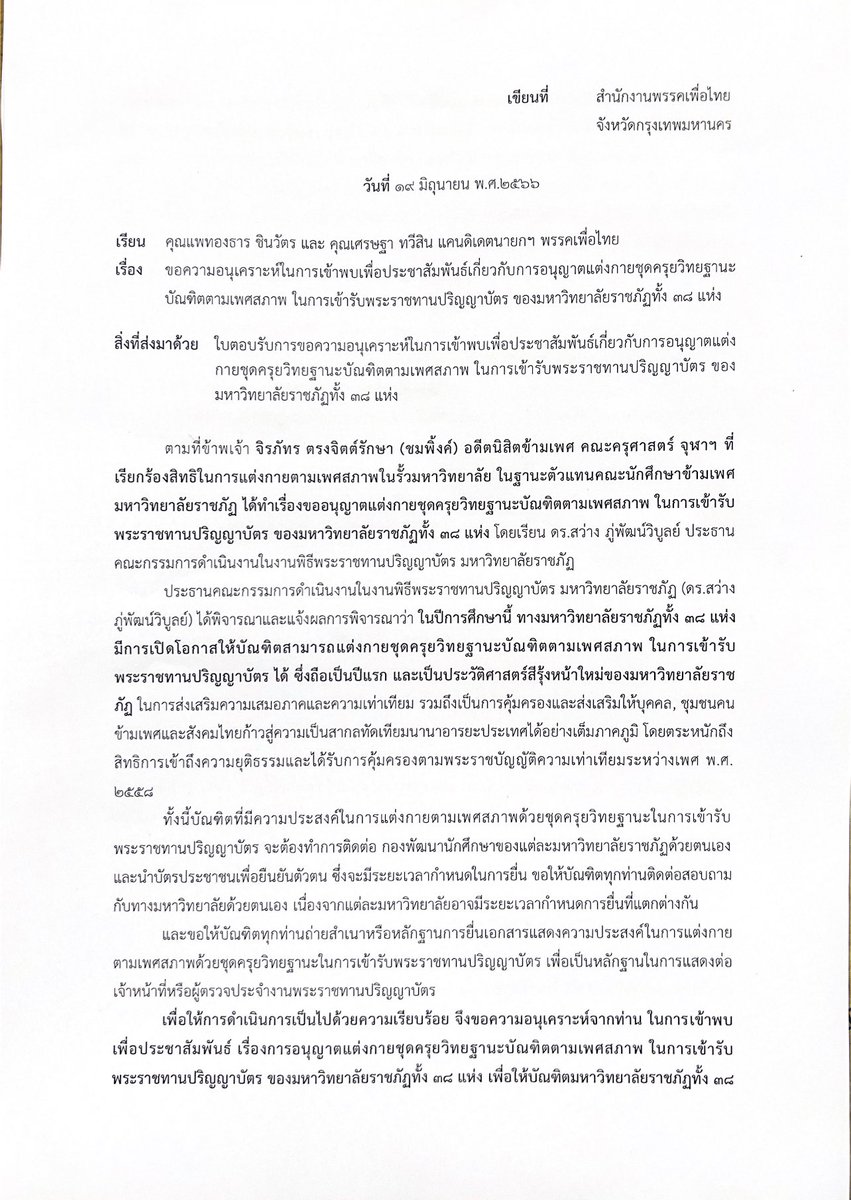 เขียนที่ สำนักงานพรรคเพื่อไทย
จังหวัดกรุงเทพมหานคร
วันที่ ๑๙ มิถุนายน พ.ศ.๒๕๖๖
เรียน คุณแพทองธาร ชินวัตร และ คุณเศรษฐา ทวีสิน แคนดิเดตนายกฯ พรรคเพื่อไทย
เรื่อง ขอความอนุเคราะห์ในการเข้าพบเพื่อประชาสัมพันธ์เกี่ยวกับการอนุญาตแต่งกายชุดครุยวิทยฐานะ
บัณฑิตตามเพศสภาพ ในการเข้ารับพระราชทานปริญญาบัตร ของมหาวิทยาลัยราชภัฏทั้ง ๓๘ แห่ง
สิ่งที่ส่งมาด้วย ใบตอบรับการขอความอนุเคราะห์ในการเข้าพบเพื่อประชาสัมพันธ์เกี่ยวกับการอนุญาตแต่ง
กายชุดครุยวิทยฐานะบัณฑิตตามเพศสภาพ ในการเข้ารับพระราชทานปริญญาบัตร ของ
มหาวิทยาลัยราชภัฏทั้ง ๓๘ แห่ง
ตามที่ข้าพเจ้า จิรภัทร ตรงจิตต์รักษา (ชมพิ้งค์) อดีตนิสิตข้ามเพศ คณะครุศาสตร์ จุฬาฯ ที่
เรียกร้องสิทธิในการแต่งกายตามเพศสภาพในรั้วมหาวิทยาลัย ในฐานะตัวแทนคณะนักศึกษาข้ามเพศ
มหาวิทยาลัยราชภัฏ ได้ทำเรื่องขออนุญาตแต่งกายชุดครุยวิทยฐานะบัณฑิตตามเพศสภาพ ในการเข้ารับ
พระราชทานปริญญาบัตร ของมหาวิทยาลัยราชภัฏทั้ง ๓๘ แห่ง โดยเรียน ดร.สว่าง ภู่พัฒน์วิบูลย์ ประธาน
คณะกรรมการดำเนินงานในงานพิธีพระราชทานปริญญาบัตร มหาวิทยาลัยราชภัฏ
ประธานคณะกรรมการดำเนินงานในงานพิธีพระราชทานปริญญาบัตร มหาวิทยาลัยราชภัฏ (ดร.สว่าง
ภู่พัฒน์วิบูลย์) ได้พิจารณาและแจ้งผลการพิจารณาว่า ในปีการศึกษานี้ ทางมหาวิทยาลัยราชภัฏทั้ง ๓๘ แห่ง
มีการเปิดโอกาสให้บัณฑิตสามารถแต่งกายชุดครุยวิทยฐานะบัณฑิตตามเพศสภาพ ในการเข้ารับ
พระราชทานปริญญาบัตร ได้ ซึ่งถือเป็นปีแรก และเป็นประวัติศาสตร์สีรุ้งหน้าใหม่ของมหาวิทยาลัยราช
ภัฏ ในการส่งเสริมความเสมอภาคและความเท่าเทียม รวมถึงเป็นการคุ้มครองและส่งเสริมให้บุคคล, ชุมชนคน
ข้ามเพศและสังคมไทยก้าวสู่ความเป็นสากลทัดเทียมนานาอารยะประเทศได้อย่างเต็มภาคภูมิ โดยตระหนักถึง
สิทธิการเข้าถึงความยุติธรรมและได้รับการคุ้มครองตามพระราชบัญญัติความเท่าเทียมระหว่างเพศ พ.ศ.
๒๕๕๘
ทั้งนี้บัณฑิตที่มีความประสงค์ในการแต่งกายตามเพศสภาพด้วยชุดครุยวิทยฐานะในการเข้ารับ
พระราชทานปริญญาบัตร จะต้องทำการติดต่อ กองพัฒนานักศึกษาของแต่ละมหาวิทยาลัยราชภัฏด้วยตนเอง
และนำบัตรประชาชนเพื่อยืนยันตัวตน ซึ่งจะมีระยะเวลากำหนดในการยื่น ขอให้บัณฑิตทุกท่านติดต่อสอบถาม
กับทางมหาวิทยาลัยด้วยตนเอง เนื่องจากแต่ละมหาวิทยาลัยอาจมีระยะเวลากำหนดการยื่นที่แตกต่างกัน
และขอให้บัณฑิตทุกท่านถ่ายสำเนาหรือหลักฐานการยื่นเอกสารแสดงความประสงค์ในการแต่งกาย
ตามเพศสภาพด้วยชุดครุยวิทยฐานะในการเข้ารับพระราชทานปริญญาบัตร เพื่อเป็นหลักฐานในการแสดงต่อ
เจ้าหน้าที่หรือผู้ตรวจประจำงานพระราชทานปริญญาบัตร
เพื่อให้การดำเนินการเป็นไปด้วยความเรียบร้อย จึงขอความอนุเคราะห์จากท่าน ในการเข้าพบ
เพื่อประชาสัมพันธ์ เรื่องการอนุญาตแต่งกายชุดครุยวิทยฐานะบัณฑิตตามเพศสภาพ ในการเข้ารับ
พระราชทานปริญญาบัตร ของมหาวิทยาลัยราชภัฏทั้ง ๓๘ แห่ง เพื่อให้บัณฑิตมหาวิทยาลัยราชภัฏทั้ง ๓๘